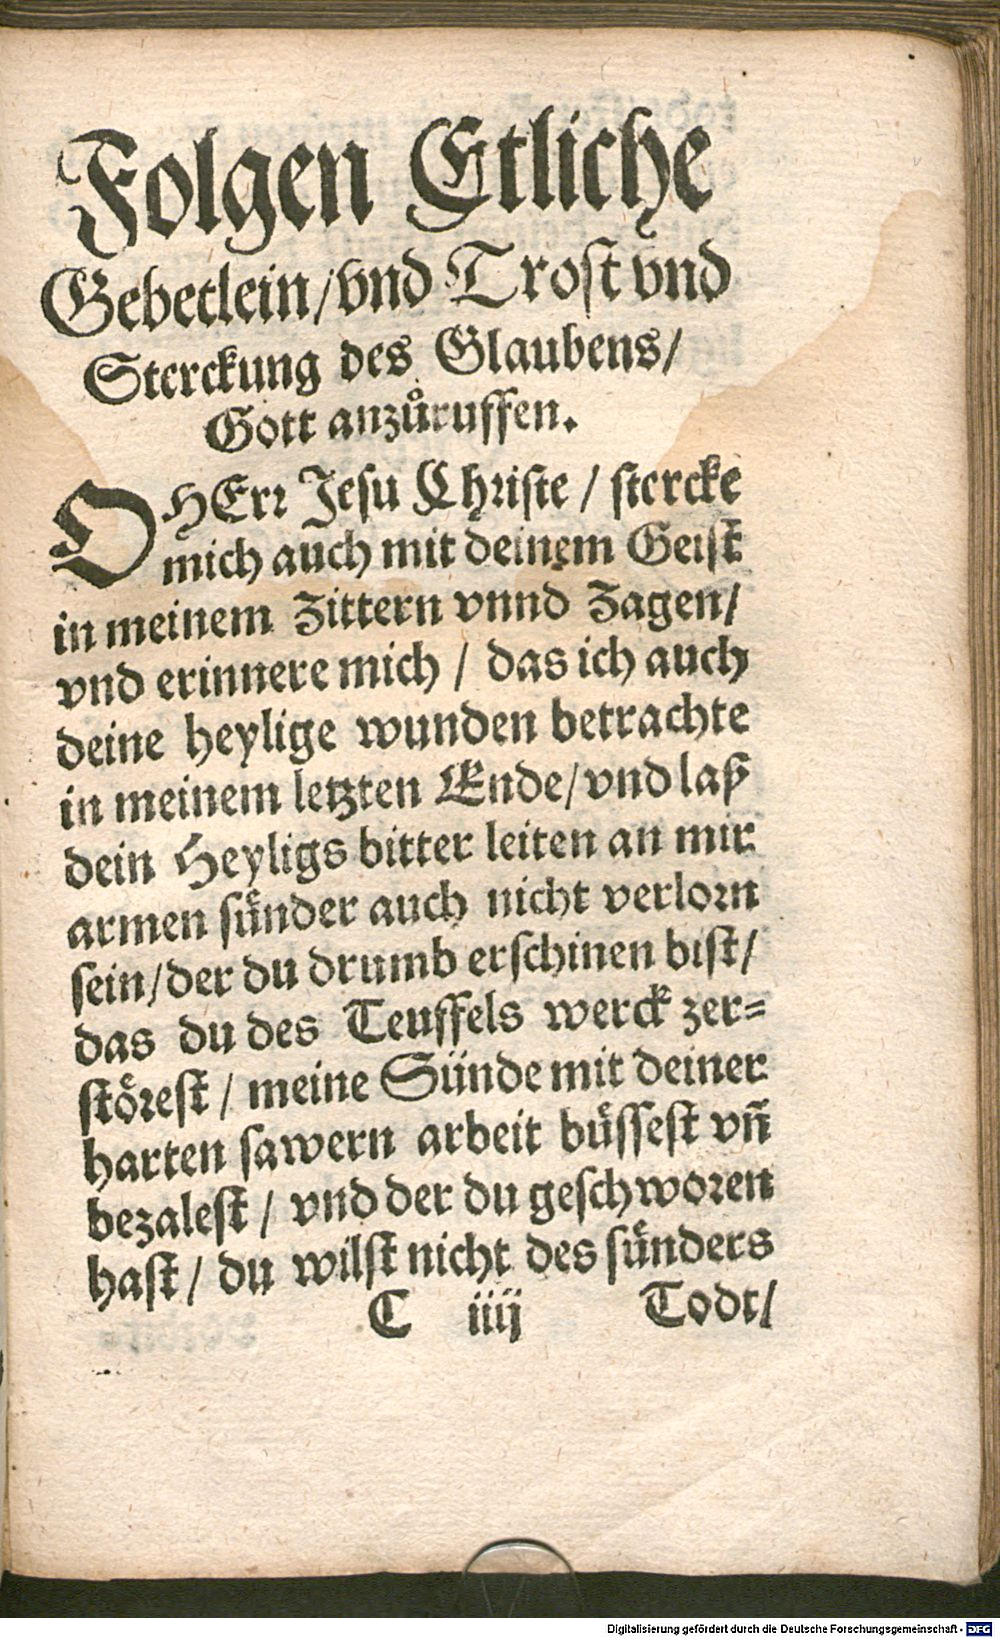 Folgen Etliche
Gebetlein/vnd Trost vnd
Sterckung des Glaubens/
Gott anzůruffen.
O HErr Jesu Christe / stercke
mich auch mit deinem Geist
in meinem Zittern vnnd Zagen/
vnd erinnere mich / das ich auch
deine heylige wunden betrachte
in meinem letzten Ende/vnd laß
dein Heyligs bitter leiten an mir
armen sünder auch nicht verlorn
sein/der du drumb erschinen bist/
das du des Teuffels werck zer=
störest / meine Sünde mit deiner
harten sawern arbeit büssest vñ
bezalest / vnd der du geschworen
hast / du wilst nicht des sünders
C iiij Todt/
Digitalisierung gefördert durch die Deutsche Forschungsgemeinschaft - DFG